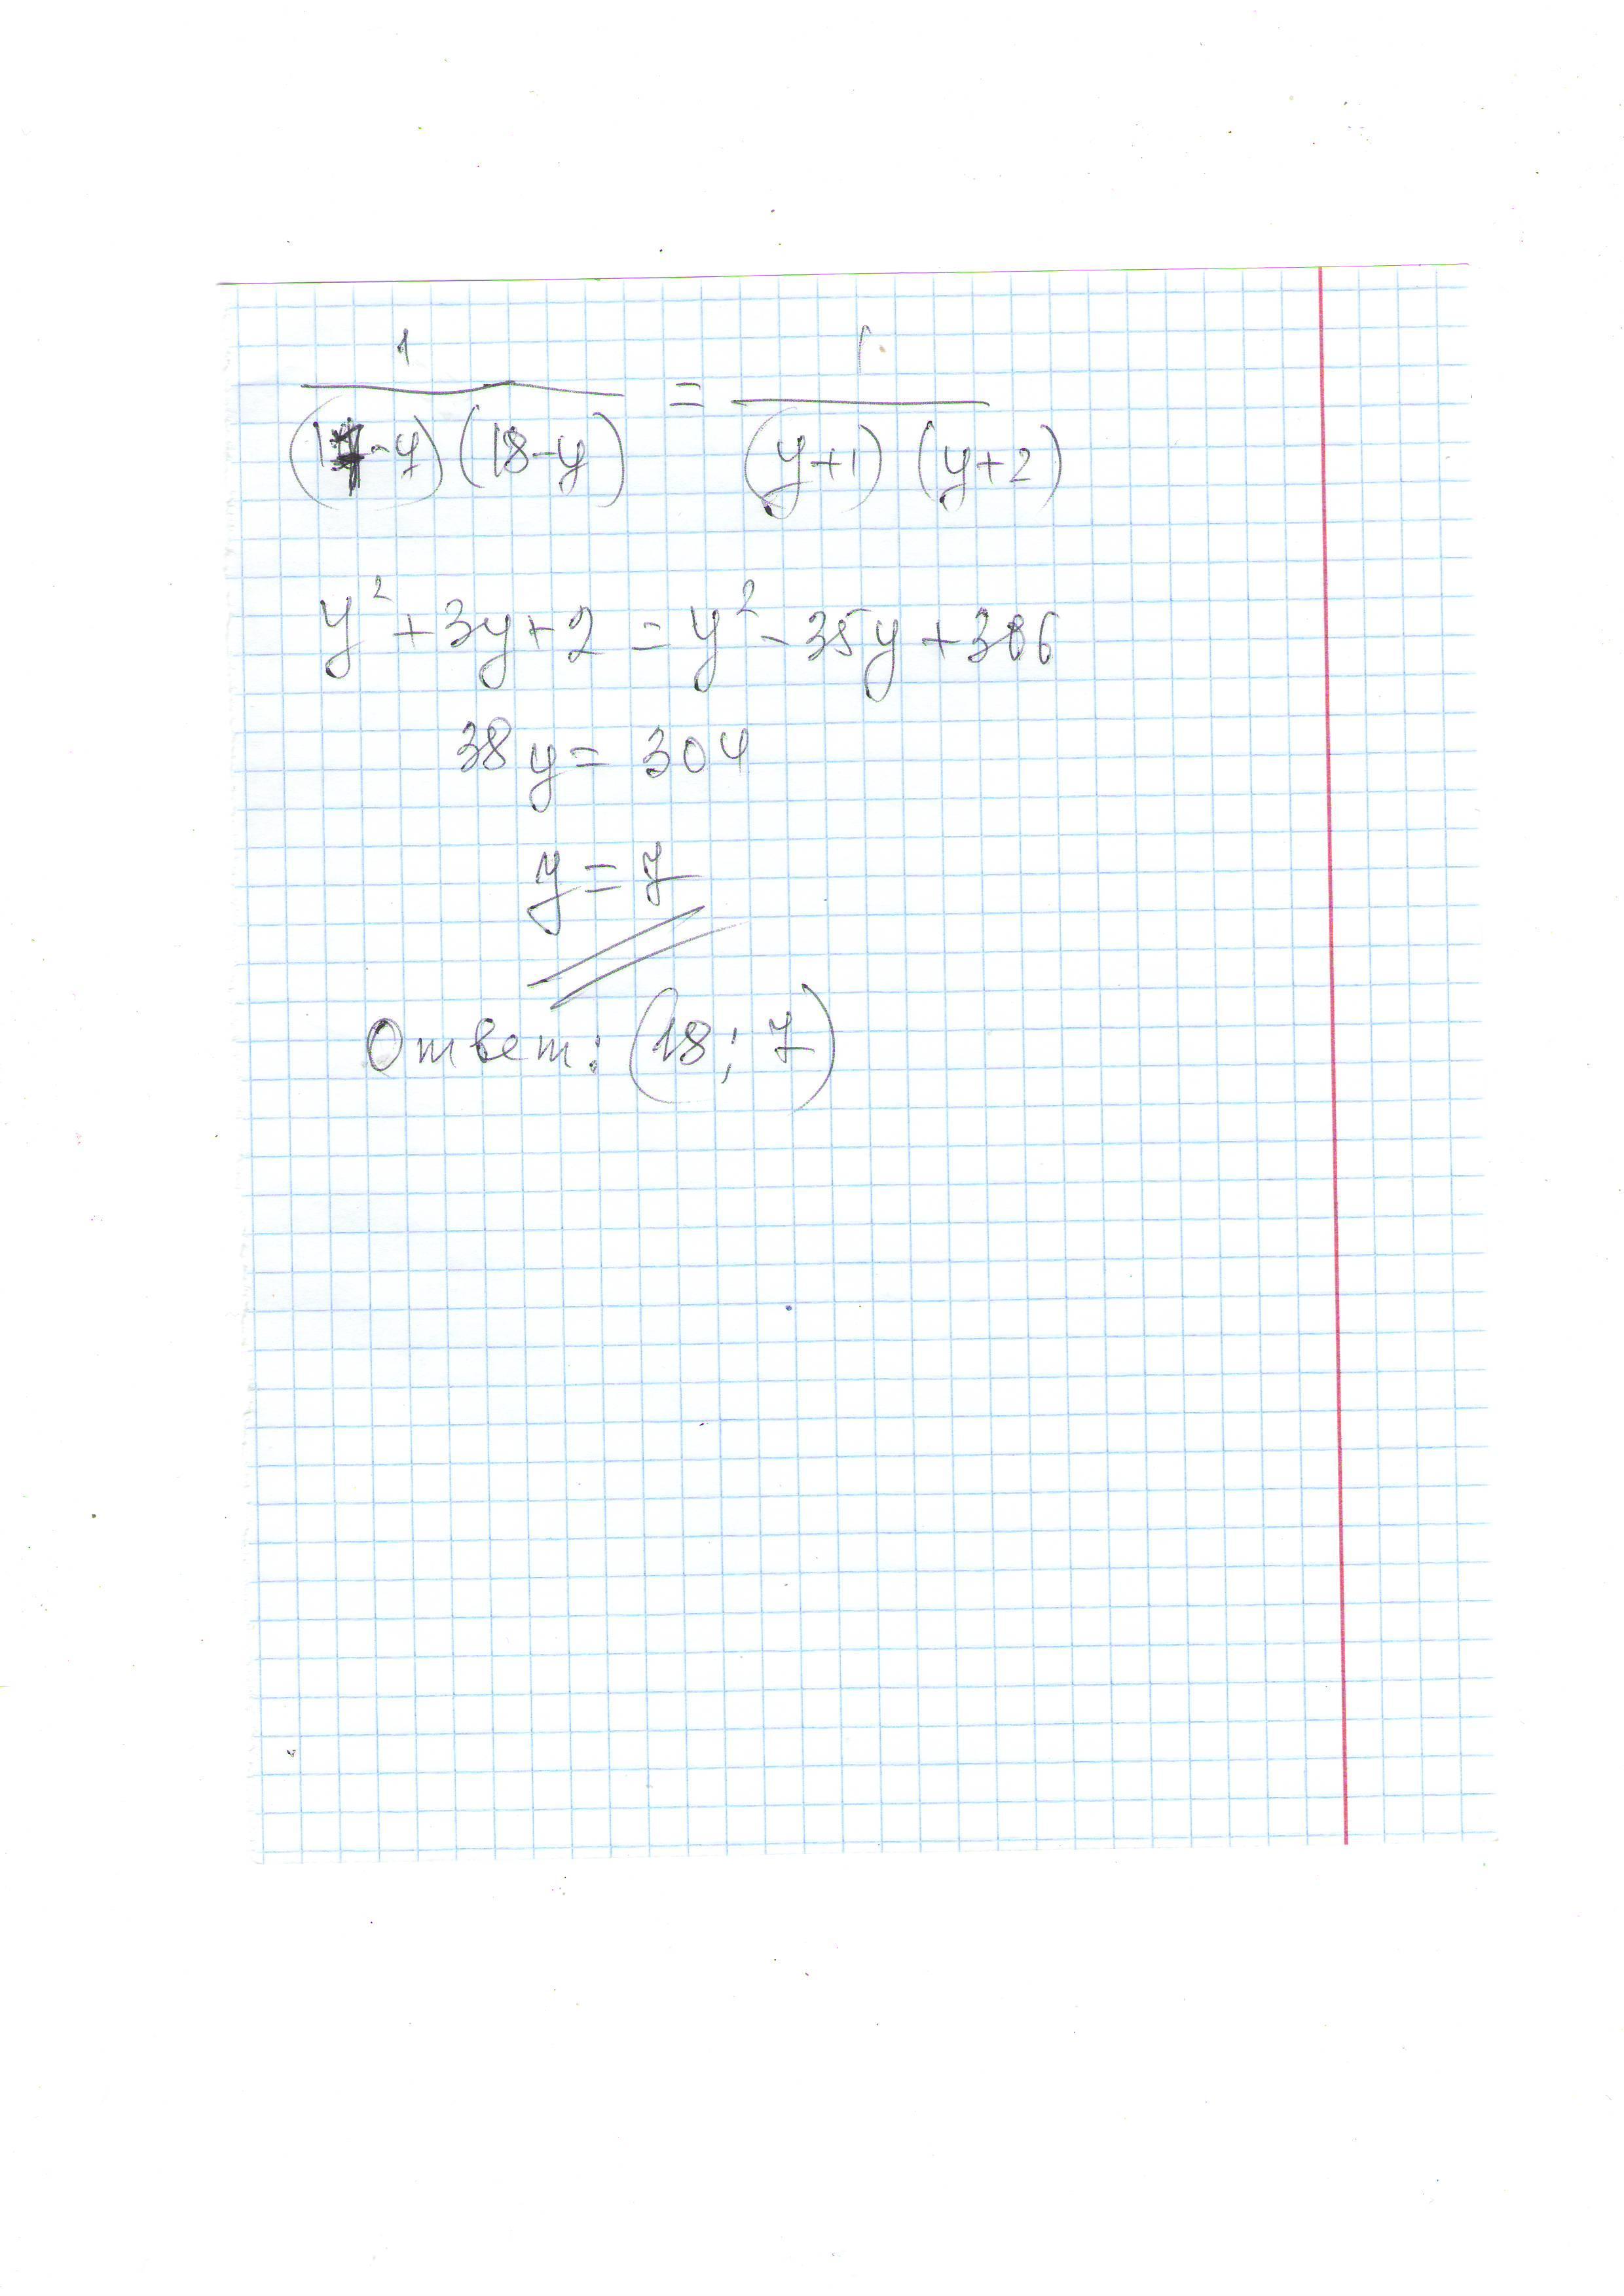 1 / ((17-y)(18-y)) = 1 / ((y+1)(y+2))
y² + 3y + 2 = y² - 35y + 306
38y = 304
y = 7
Ответ: (18; 7)